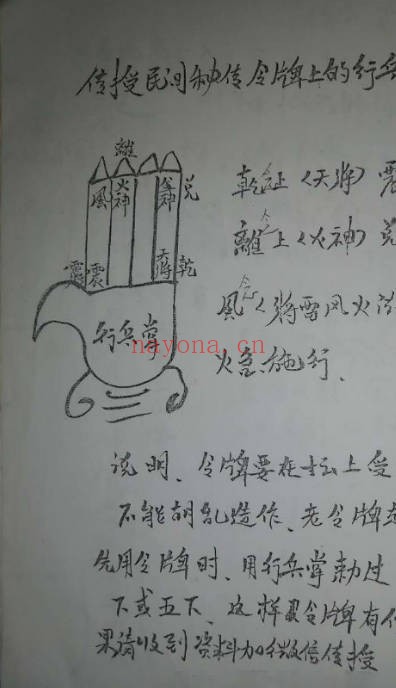 传授民间秘传令牌上的行兵
離
風 火神 金神 兑
雷 震 天将 乾
行兵掌
乾上〈天将〉震
離上〈火神〉兑
風〈将雷风火
火急施行.
nayona.cn
说明、令牌要在坛上受
不能胡乱造作、老令牌
先用令牌时、用行兵掌勅过
下或五下、这样令牌有
果请收到资料加微信传授